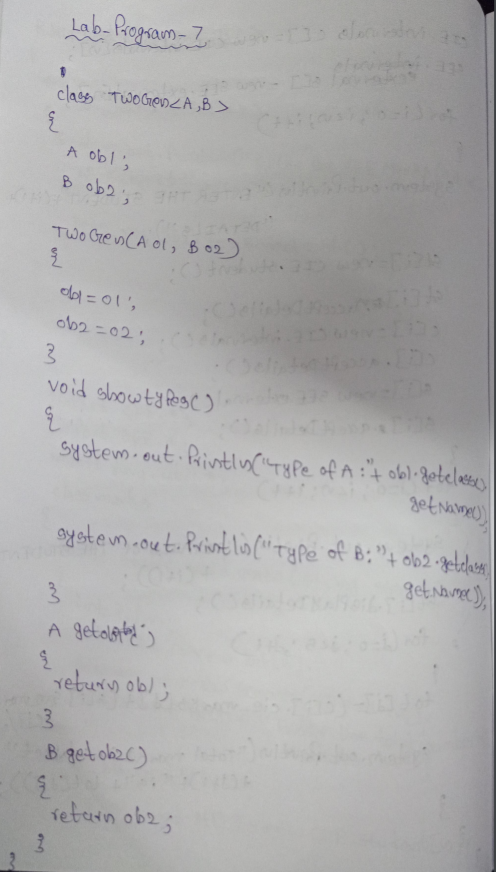 Lab-Program-7
class TwoGen<A,B>
{
A ob1;
B ob2;
TwoGen(A o1, B o2)
{
ob1 = o1;
ob2 = o2;
}
void showtypes()
{
system.out.Println("Type of A:"+ ob1.getclass()
getName());
system.out.Println("Type of B:"+ ob2.getclass
getName());
}
A
{
return ob1;
}
B getob2()
{
return ob2;
}
}